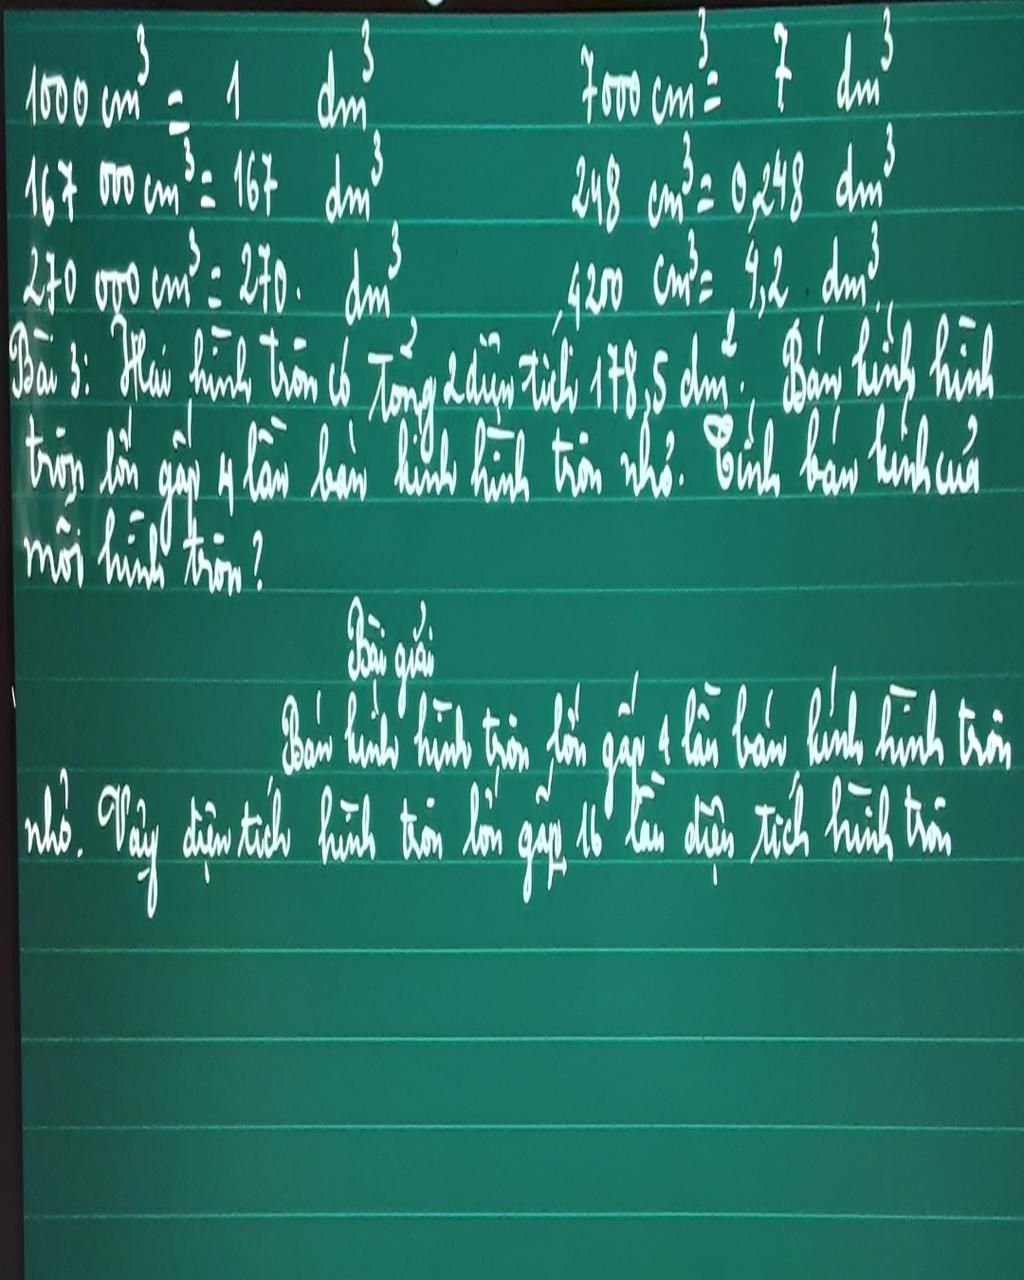 1000 cm³ = 1 dm³ 7000 cm³ = 7 dm³
167 000 cm³ = 167 dm³ 248 cm³ = 0,248 dm³
270 000 cm³ = 270. dm³ 4200 cm³ = 4,2 dm³
Bài 3: Hai hình tròn có tổng 2 diện tích 178,5 dm². Bán kính hình
tròn lớn gấp 4 lần bán kính hình tròn nhỏ. Tính bán kính của
mỗi hình tròn?
Bài giải
Bán kính hình tròn lớn gấp 4 lần bán kính hình tròn
nhỏ. Vậy diện tích hình tròn lớn gấp 16 lần diện tích hình tròn